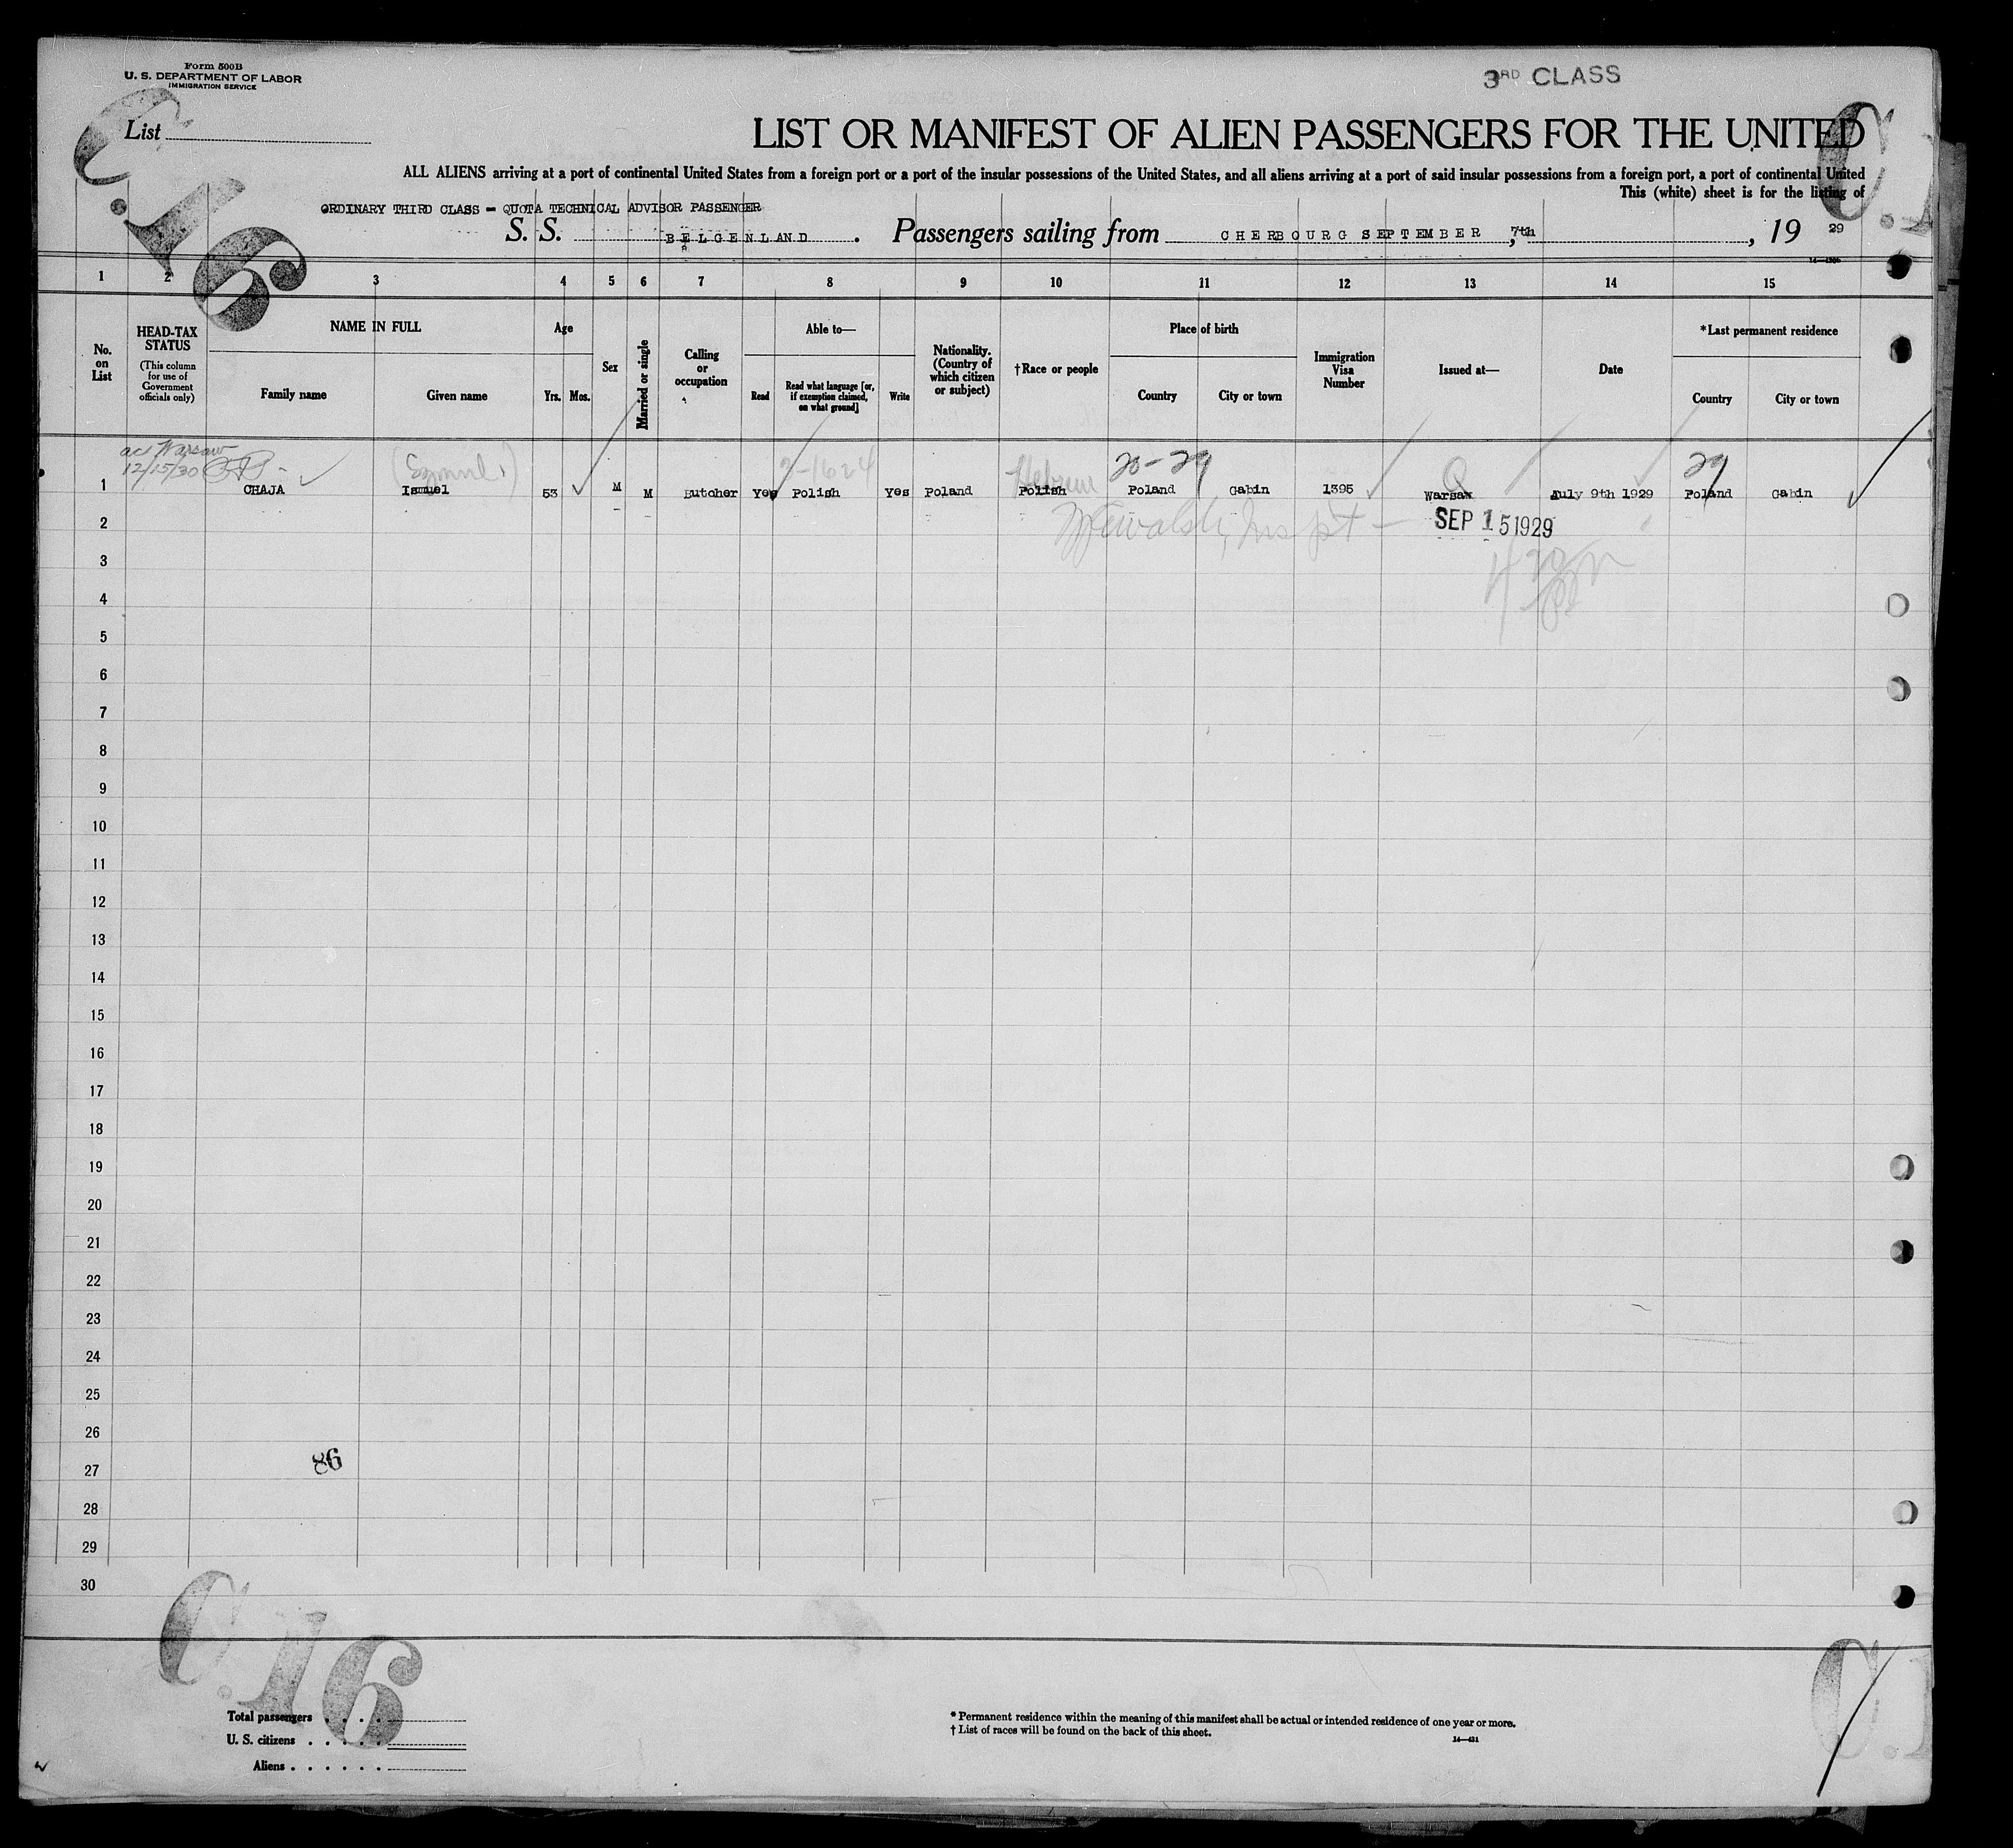 Form 500B
U. S. DEPARTMENT OF LABOR
IMMIGRATION SERVICE
3RD CLASS
C.16
C.1
List
LIST OR MANIFEST OF ALIEN PASSENGERS FOR THE UNITED
ALL ALIENS arriving at a port of continental United States from a foreign port or a port of the insular possessions of the United States, and all aliens arriving at a port of said insular possessions from a foreign port, a port of continental United
This (white) sheet is for the listing of
ORDINARY THIRD CLASS - QUOTA TECHNICAL ADVISOR PASSENGER
S. S. BELGENLAND. Passengers sailing from CHERBOURG SEPTEMBER 7th, 19 29
1 2 3 4 5 6 7 8 9 10 11 12 13 14 15
No. on List
HEAD-TAX STATUS
(This column for use of Government officials only)
NAME IN FULL
Family name
Given name
Age
Yrs.
Mos.
Sex
Married or single
Calling or occupation
Able to—
Read
Read what language [or, if exemption claimed, on what ground]
Write
Nationality. (Country of which citizen or subject)
†Race or people
Place of birth
Country
City or town
Immigration Visa Number
Issued at—
Date
*Last permanent residence
Country
City or town
Warsaw
12/15/30
2-1624
Hebrew
20-29
Q
29
1 CHAJA Ismuel 53 M M Butcher Yes Polish Yes Poland Polish Poland Gabin 1395 Warsaw July 9th 1929 Poland Gabin
2
SEP 15 1929
3
4
5
6
7
8
9
10
11
12
13
14
15
16
17
18
19
20
21
22
23
24
25
26
86
27
28
29
30
C.16
C.1
Total passengers
U. S. citizens
Aliens
* Permanent residence within the meaning of this manifest shall be actual or intended residence of one year or more.
† List of races will be found on the back of this sheet.
14—431